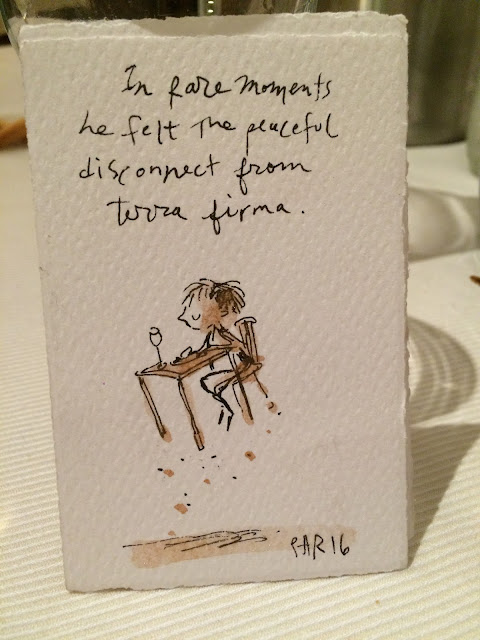 In rare moments
he felt the peaceful
disconnect from
terra firma.
PAR16